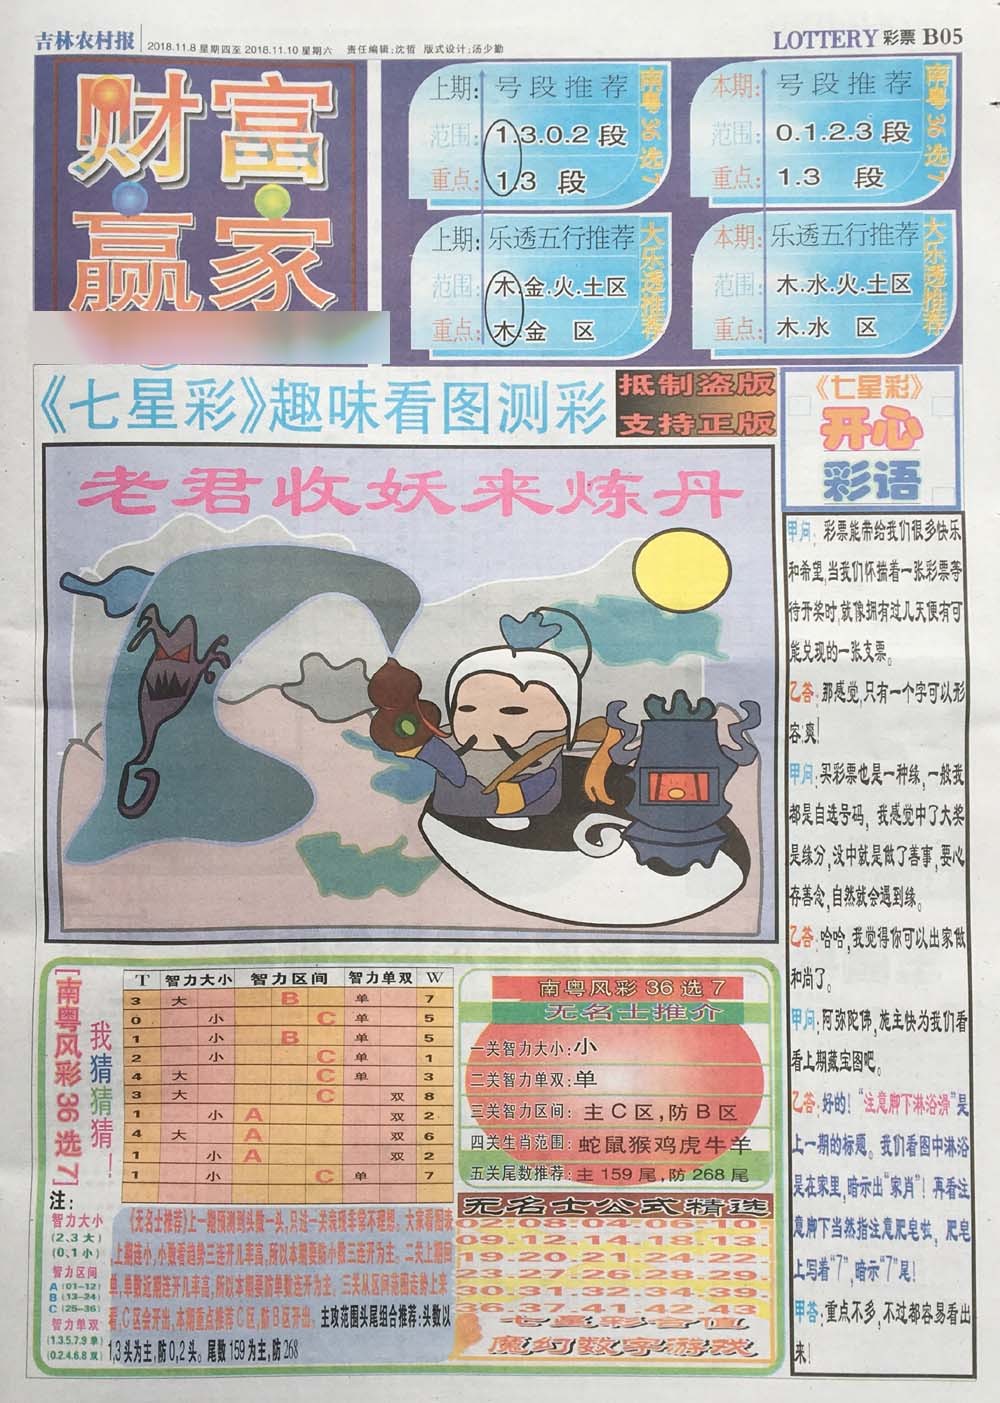 吉林农村报
2018.11.8 星期四至 2018.11.10 星期六 责任编辑:沈哲 版式设计:汤少勤
LOTTERY 彩票 B05
财富
赢家
上期: 号段推荐
范围: 1.3.0.2 段
重点: 1.3 段
南粤36选7
本期: 号段推荐
范围: 0.1.2.3 段
重点: 1.3 段
南粤36选7
上期: 乐透五行推荐
范围: 木.金.火.土区
重点: 木.金 区
大乐透推荐
本期: 乐透五行推荐
范围: 木.水.火.土区
重点: 木.水 区
大乐透推荐
《七星彩》趣味看图测彩
抵制盗版
支持正版
老君收妖来炼丹
《七星彩》
开心
彩语
甲问: 彩票能带给我们很多快乐
和希望,当我们怀揣着一张彩票等
待开奖时,就像拥有过几天便有可
能兑现的一张支票。
乙答:那感觉,只有一个字可以形
容:爽!
甲问:买彩票也是一种缘,一般我
都是自选号码, 我感觉中了大奖
是缘分,没中就是做了善事,要心
存善念,自然就会遇到缘。
乙答:哈哈,我觉得你可以出家做
和尚了。
甲问:阿弥陀佛,施主快为我们看
看上期藏宝图吧。
乙答:好的!“注意脚下淋浴滑”是
上一期的标题。我们看图中淋浴
是在家里,暗示出“家肖”! 再看注
意脚下当然指注意肥皂啦, 肥皂
上写着“7”,暗示“7”尾!
甲答:重点不多,不过都容易看出
来!
[南粤风彩36选7]
我猜猜猜!
T 智力大小 智力区间 智力单双 W
3 大 B 单 7
0 小 C 单 5
1 小 B 单 5
2 小 C 单 1
4 大 C 单 3
3 大 C 双 8
1 小 A 双 2
4 大 A 双 6
1 小 A 双 2
1 小 C 单 7
注:
智力大小
(2.3 大)
(0.1 小)
智力区间
A (01-12)
B (13-24)
C (25-36)
智力单双
(1.3.5.7.9 单)
(0.2.4.6.8 双)
《无名士推荐》上一期预测到头数一头,只过一关表现非常不理想。大家看图表
,上期连小,小数看趋势三连开几率高,所以本期要防小数三连开为主。二关上期回
单,单数近期连开几率高,所以本期要防单数连开为主。三关从区间范围走势上来
看,C区会开出,本期重点推荐C区,防B区开出。主攻范围头尾组合推荐:头数以
1,3头为主,防0,2头。尾数159为主,防268
南粤风彩36选7
无名士推介
一关智力大小:小
二关智力单双:单
三关智力区间: 主C区,防B区
四关生肖范围: 蛇鼠猴鸡虎牛羊
五关尾数推荐:主159尾,防268尾
无名士公式精选
02.08.04.06.10.03.
09.12.14.18.13.
19.20.21.24.22.
23.27.26.28.29.
30.31.32.34.39.
36.37.41.42.43
七星彩合值
魔幻数字游戏